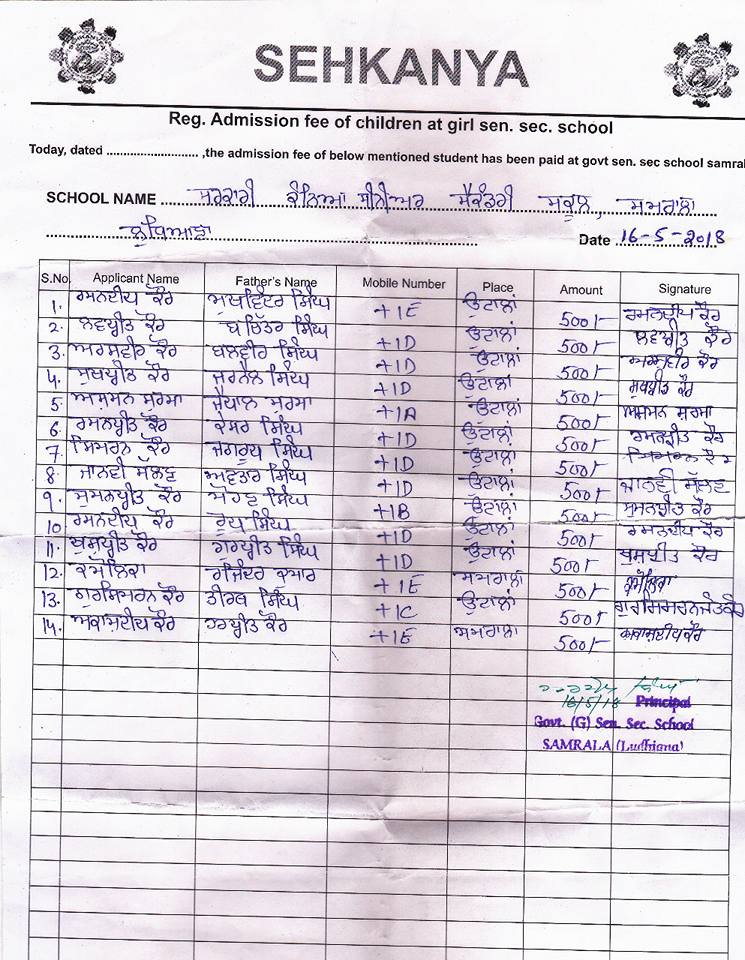 SEHKANYA
Reg. Admission fee of children at girl sen. sec. school
Today, dated ............................ ,the admission fee of below mentioned student has been paid at govt sen. sec school samral
SCHOOL NAME ਸਰਕਾਰੀ ਕੰਨਿਆ ਸੀਨੀਅਰ ਸੈਕੰਡਰੀ ਸਕੂਲ, ਸਮਰਾਲਾ
ਲੁਧਿਆਣਾ Date 16-5-2018
S.No. Applicant Name Father's Name Mobile Number Place Amount Signature
1. ਰਮਨਦੀਪ ਕੌਰ ਸੁਖਵਿੰਦਰ ਸਿੰਘ +1E ਉਟਾਲਾਂ 500/- ਰਮਨਦੀਪ ਕੌਰ
2. ਲਵਪ੍ਰੀਤ ਕੌਰ ਬਚਿੱਤਰ ਸਿੰਘ +1D ਉਟਾਲਾਂ 500/- ਲਵਪ੍ਰੀਤ ਕੌਰ
3. ਅਰਸ਼ਵੀਰ ਕੌਰ ਬਲਵੀਰ ਸਿੰਘ +1D ਉਟਾਲਾਂ 500/- ਅਰਸ਼ਵੀਰ ਕੌਰ
4. ਸੁਖਪ੍ਰੀਤ ਕੌਰ ਜਰਨੈਲ ਸਿੰਘ +1D ਉਟਾਲਾਂ 500/- ਸੁਖਪ੍ਰੀਤ ਕੌਰ
5. ਸ਼ਰਮਾ ਜੈਪਾਲ ਸ਼ਰਮਾ +1A ਉਟਾਲਾਂ 500/- ਸ਼ਰਮਾ
6. ਰਮਨਪ੍ਰੀਤ ਕੌਰ ਕੇਸਰ ਸਿੰਘ +1D ਉਟਾਲਾਂ 500/- ਰਮਨਪ੍ਰੀਤ ਕੌਰ
7. ਸਿਮਰਨ ਕੌਰ ਜਗਰੂਪ ਸਿੰਘ +1D ਉਟਾਲਾਂ 500/- ਸਿਮਰਨ ਕੌਰ
8. ਜਾਨਵੀ ਮੱਲਣ ਅਵਤਾਰ ਸਿੰਘ +1D ਉਟਾਲਾਂ 500/- ਜਾਨਵੀ ਮੱਲਣ
9. ਸੁਮਨਪ੍ਰੀਤ ਕੌਰ ਮੋਹਣ ਸਿੰਘ +1B ਉਟਾਲਾਂ 500/- ਸੁਮਨਪ੍ਰੀਤ ਕੌਰ
10. ਰਮਨਦੀਪ ਕੌਰ ਰੂਪ ਸਿੰਘ +1D ਉਟਾਲਾਂ 500/- ਰਮਨਦੀਪ ਕੌਰ
11. ਖੁਸ਼ਪ੍ਰੀਤ ਕੌਰ ਗੁਰਪ੍ਰੀਤ ਸਿੰਘ +1D ਉਟਾਲਾਂ 500/- ਖੁਸ਼ਪ੍ਰੀਤ ਕੌਰ
12. ਕਮੋਲਿਕਾ ਰਜਿੰਦਰ ਕੁਮਾਰ +1E ਸਮਰਾਲਾ 500/- ਕਮੋਲਿਕਾ
13. ਗੁਰਸਿਮਰਨ ਕੌਰ ਤੀਰਥ ਸਿੰਘ +1C ਉਟਾਲਾਂ 500/- ਗੁਰਸਿਮਰਨਜੋਤ ਕੌਰ
14. ਅਕਾਸ਼ਦੀਪ ਕੌਰ ਹਰਪ੍ਰੀਤ ਕੌਰ +1E ਸਮਰਾਲਾ 500/- ਅਕਾਸ਼ਦੀਪ ਕੌਰ
16/5/18 Principal
Govt. (G) Sen. Sec. School
SAMRALA (Ludhiana)